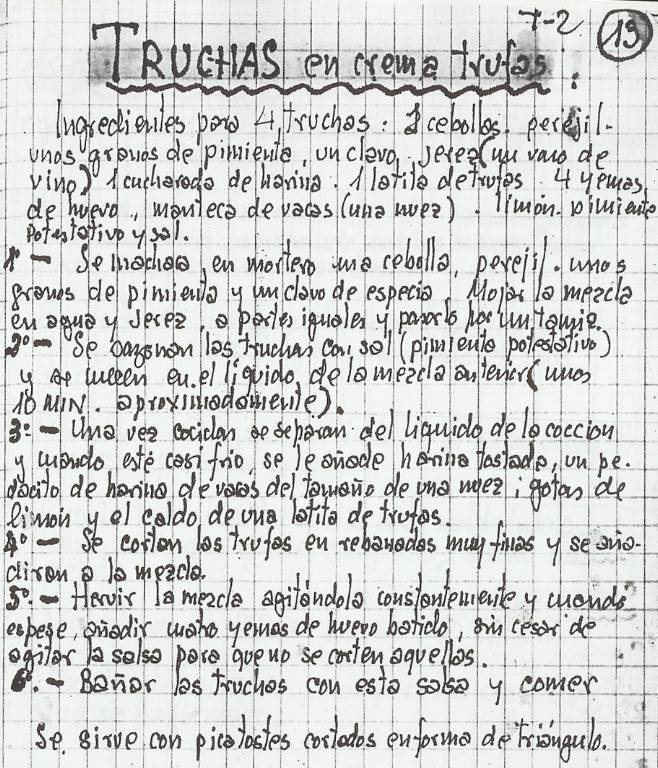 T-2 13
TRUCHAS en crema trufas:
Ingredientes para 4 truchas: 2 cebollas. perejil.
unos granos de pimienta, un clavo, Jerez (un vaso de
vino) 1 cucharada de harina. 1 latita de trufas 4 yemas
de huevo., manteca de vacas (una nuez). limón. pimienta
potestativo y sal.
1º - Se machaca, en mortero una cebolla, perejil. unos
granos de pimienta y un clavo de especia. Mojar la mezcla
en agua y Jerez, a partes iguales y pasarlo por un tamiz.
2º - Se sazonan las truchas con sal (pimienta potestativo)
y se cuecen en el líquido, de la mezcla anterior (unos
10 MIN. aproximadamente).
3º - Una vez cocidas se separan del liquido de la coccion
y cuando esté casi frio, se le añade harina tostada, un pe-
dacito de harina de vacas del tamaño de una nuez; gotas de
limón y el caldo de una latita de trufas.
4º - Se cortan las trufas en rebanadas muy finas y se aña-
diran a la mezcla.
5º. - Hervir la mezcla agitándola constantemente y cuando
espese, añadir cuatro yemas de huevo batido, sin cesar de
agitar la salsa para que no se corten aquellas.
6º. - Bañar las truchas con esta salsa y comer
Se sirve con picatostes cortados en forma de triángulo.